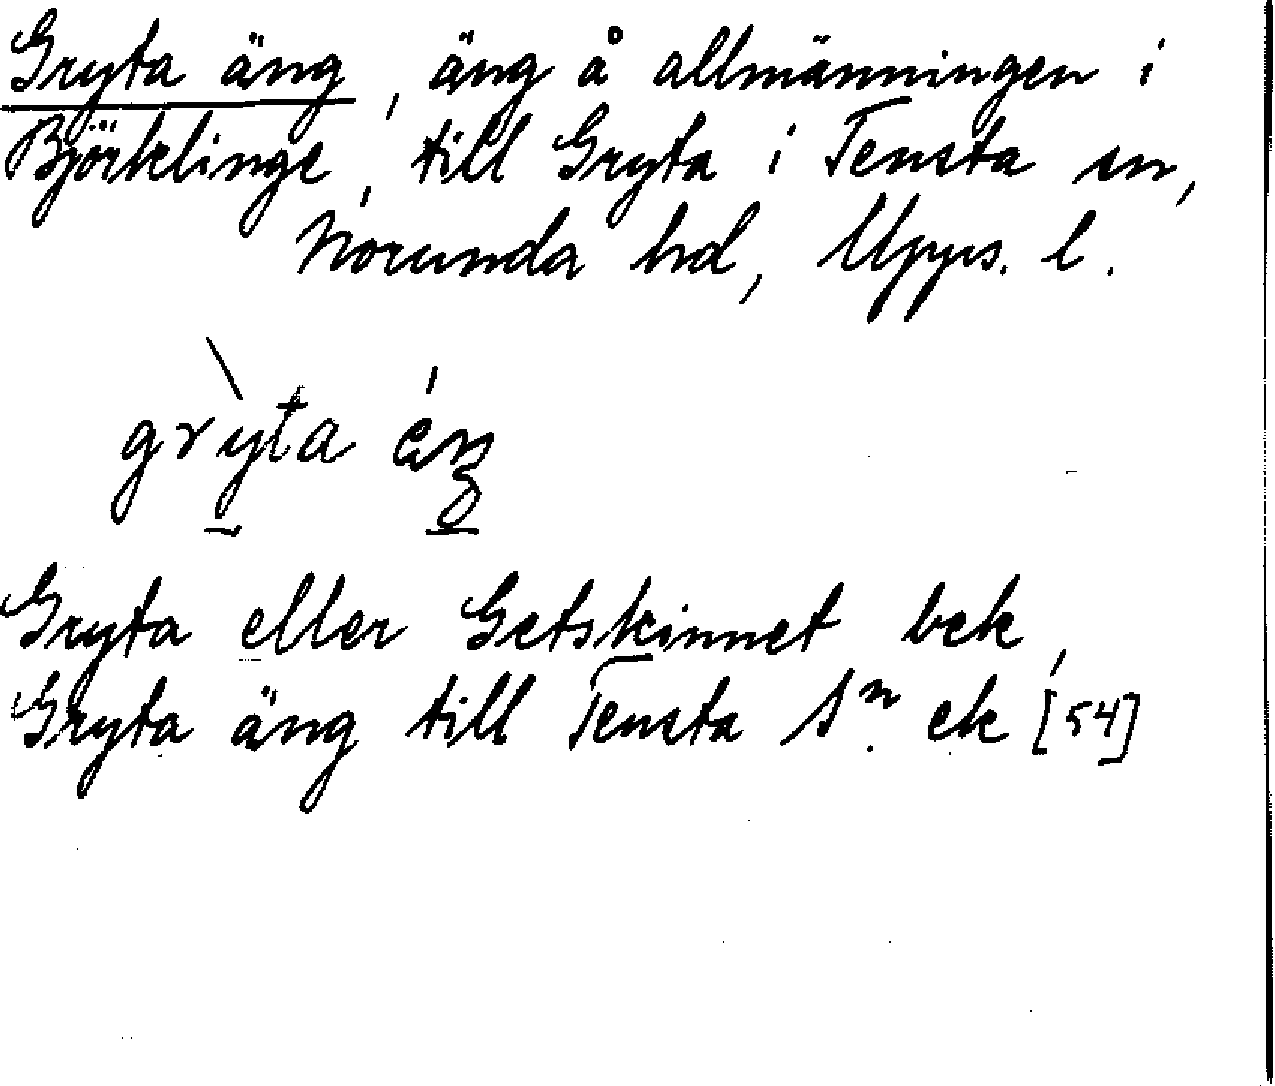 Gryta äng, äng å allmänningen i
Björklinge, till Gryta i Tensta sn,
Norunda hd, Upps. l.
grỳta
Gryta eller Getskinnet bek,
Gryta äng till Tensta Sn. ek [54]